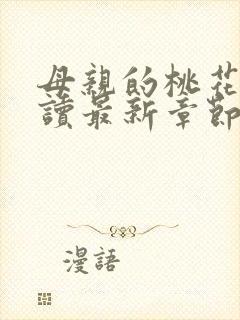 母親的桃花
讀最新章節
漫語